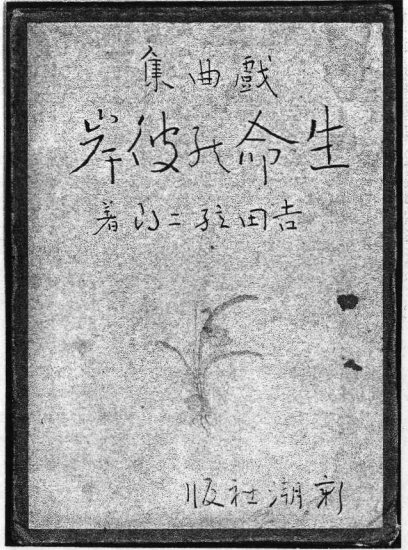 戲曲集
生命の彼岸
吉田絃二郎著
新潮社版